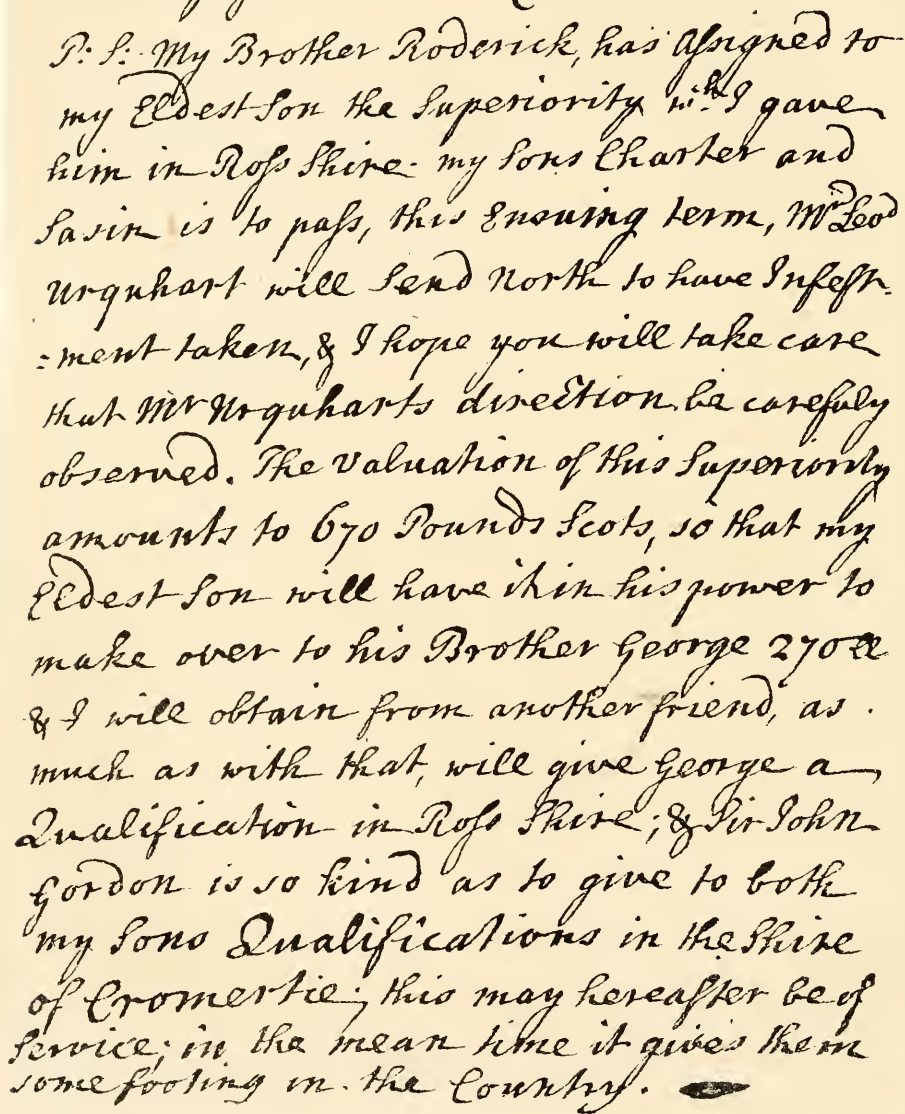 P: S: My Brother Roderick, has Assigned to
my Eldest Son the Superiority wch I gave
him in Ross Shire. my Sons Charter and
Sasin is to pass, this Ensuing term, Mr Leod
Urquhart will Send North to have Infeft-
:ment taken, & I hope you will take care
that Mr Urquharts direction be carefuly
observed. The Valuation of this Superiority
amounts to 670 Pounds Scots, so that my
Eldest Son will have it in his power to
make over to his Brother George 270 ll
& I will obtain from another friend, as
much as with that, will give George a
Qualification in Ross Shire; & Sir John
Gordon is so kind as to give to both
my Sons Qualifications in the Shire
of Cromertie; this may hereafter be of
Service; in the mean time it gives them
some footing in the Country.